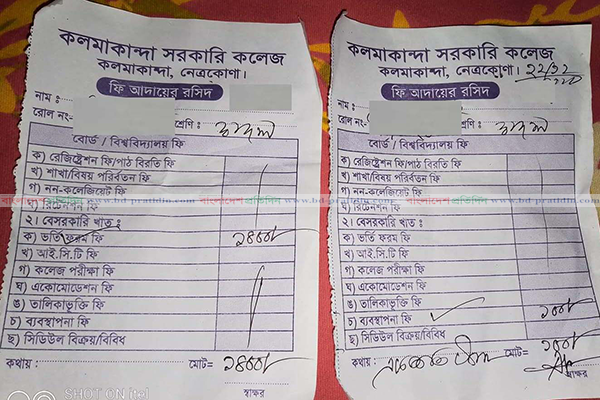 কলমাকান্দা সরকারি কলেজ
কলমাকান্দা, নেত্রকোণা।
ফি আদায়ের রসিদ
নাম :
রোল নং- শ্রেণি : দ্বাদশ
বোর্ড / বিশ্ববিদ্যালয় ফি
ক) রেজিষ্ট্রেশন ফি/পাঠ বিরতি ফি
খ) শাখা/বিষয় পরিবর্তন ফি
গ) নন-কলেজিয়েট ফি
ঘ) রিটেনশন ফি
২। বেসরকারি খাত :
ক) ভর্তি ফরম ফি
খ) আই.সি.টি ফি
গ) কলেজ পরীক্ষা ফি
ঘ) একোমোডেশন ফি
ঙ) তালিকাভুক্তি ফি
চ) ব্যবস্থাপনা ফি
ছ) সিডিউল বিক্রয়/বিবিধ
কথায় : মোট=
স্বাক্ষর
SHOT ON itel
কলমাকান্দা সরকারি কলেজ
কলমাকান্দা, নেত্রকোণা।
ফি আদায়ের রসিদ
নাম :
রোল নং- শ্রেণি : দ্বাদশ
বোর্ড / বিশ্ববিদ্যালয় ফি
ক) রেজিষ্ট্রেশন ফি/পাঠ বিরতি ফি
খ) শাখা/বিষয় পরিবর্তন ফি
গ) নন-কলেজিয়েট ফি
ঘ) রিটেনশন ফি
২। বেসরকারি খাত :
ক) ভর্তি ফরম ফি
খ) আই.সি.টি ফি
গ) কলেজ পরীক্ষা ফি
ঘ) একোমোডেশন ফি
ঙ) তালিকাভুক্তি ফি
চ) ব্যবস্থাপনা ফি
ছ) সিডিউল বিক্রয়/বিবিধ
কথায় : মোট=
স্বাক্ষর
বাংলাদেশ প্রতিদিন www.bd-pratidin.com বাংলাদেশ প্রতিদিন www.bd-pratidin.com